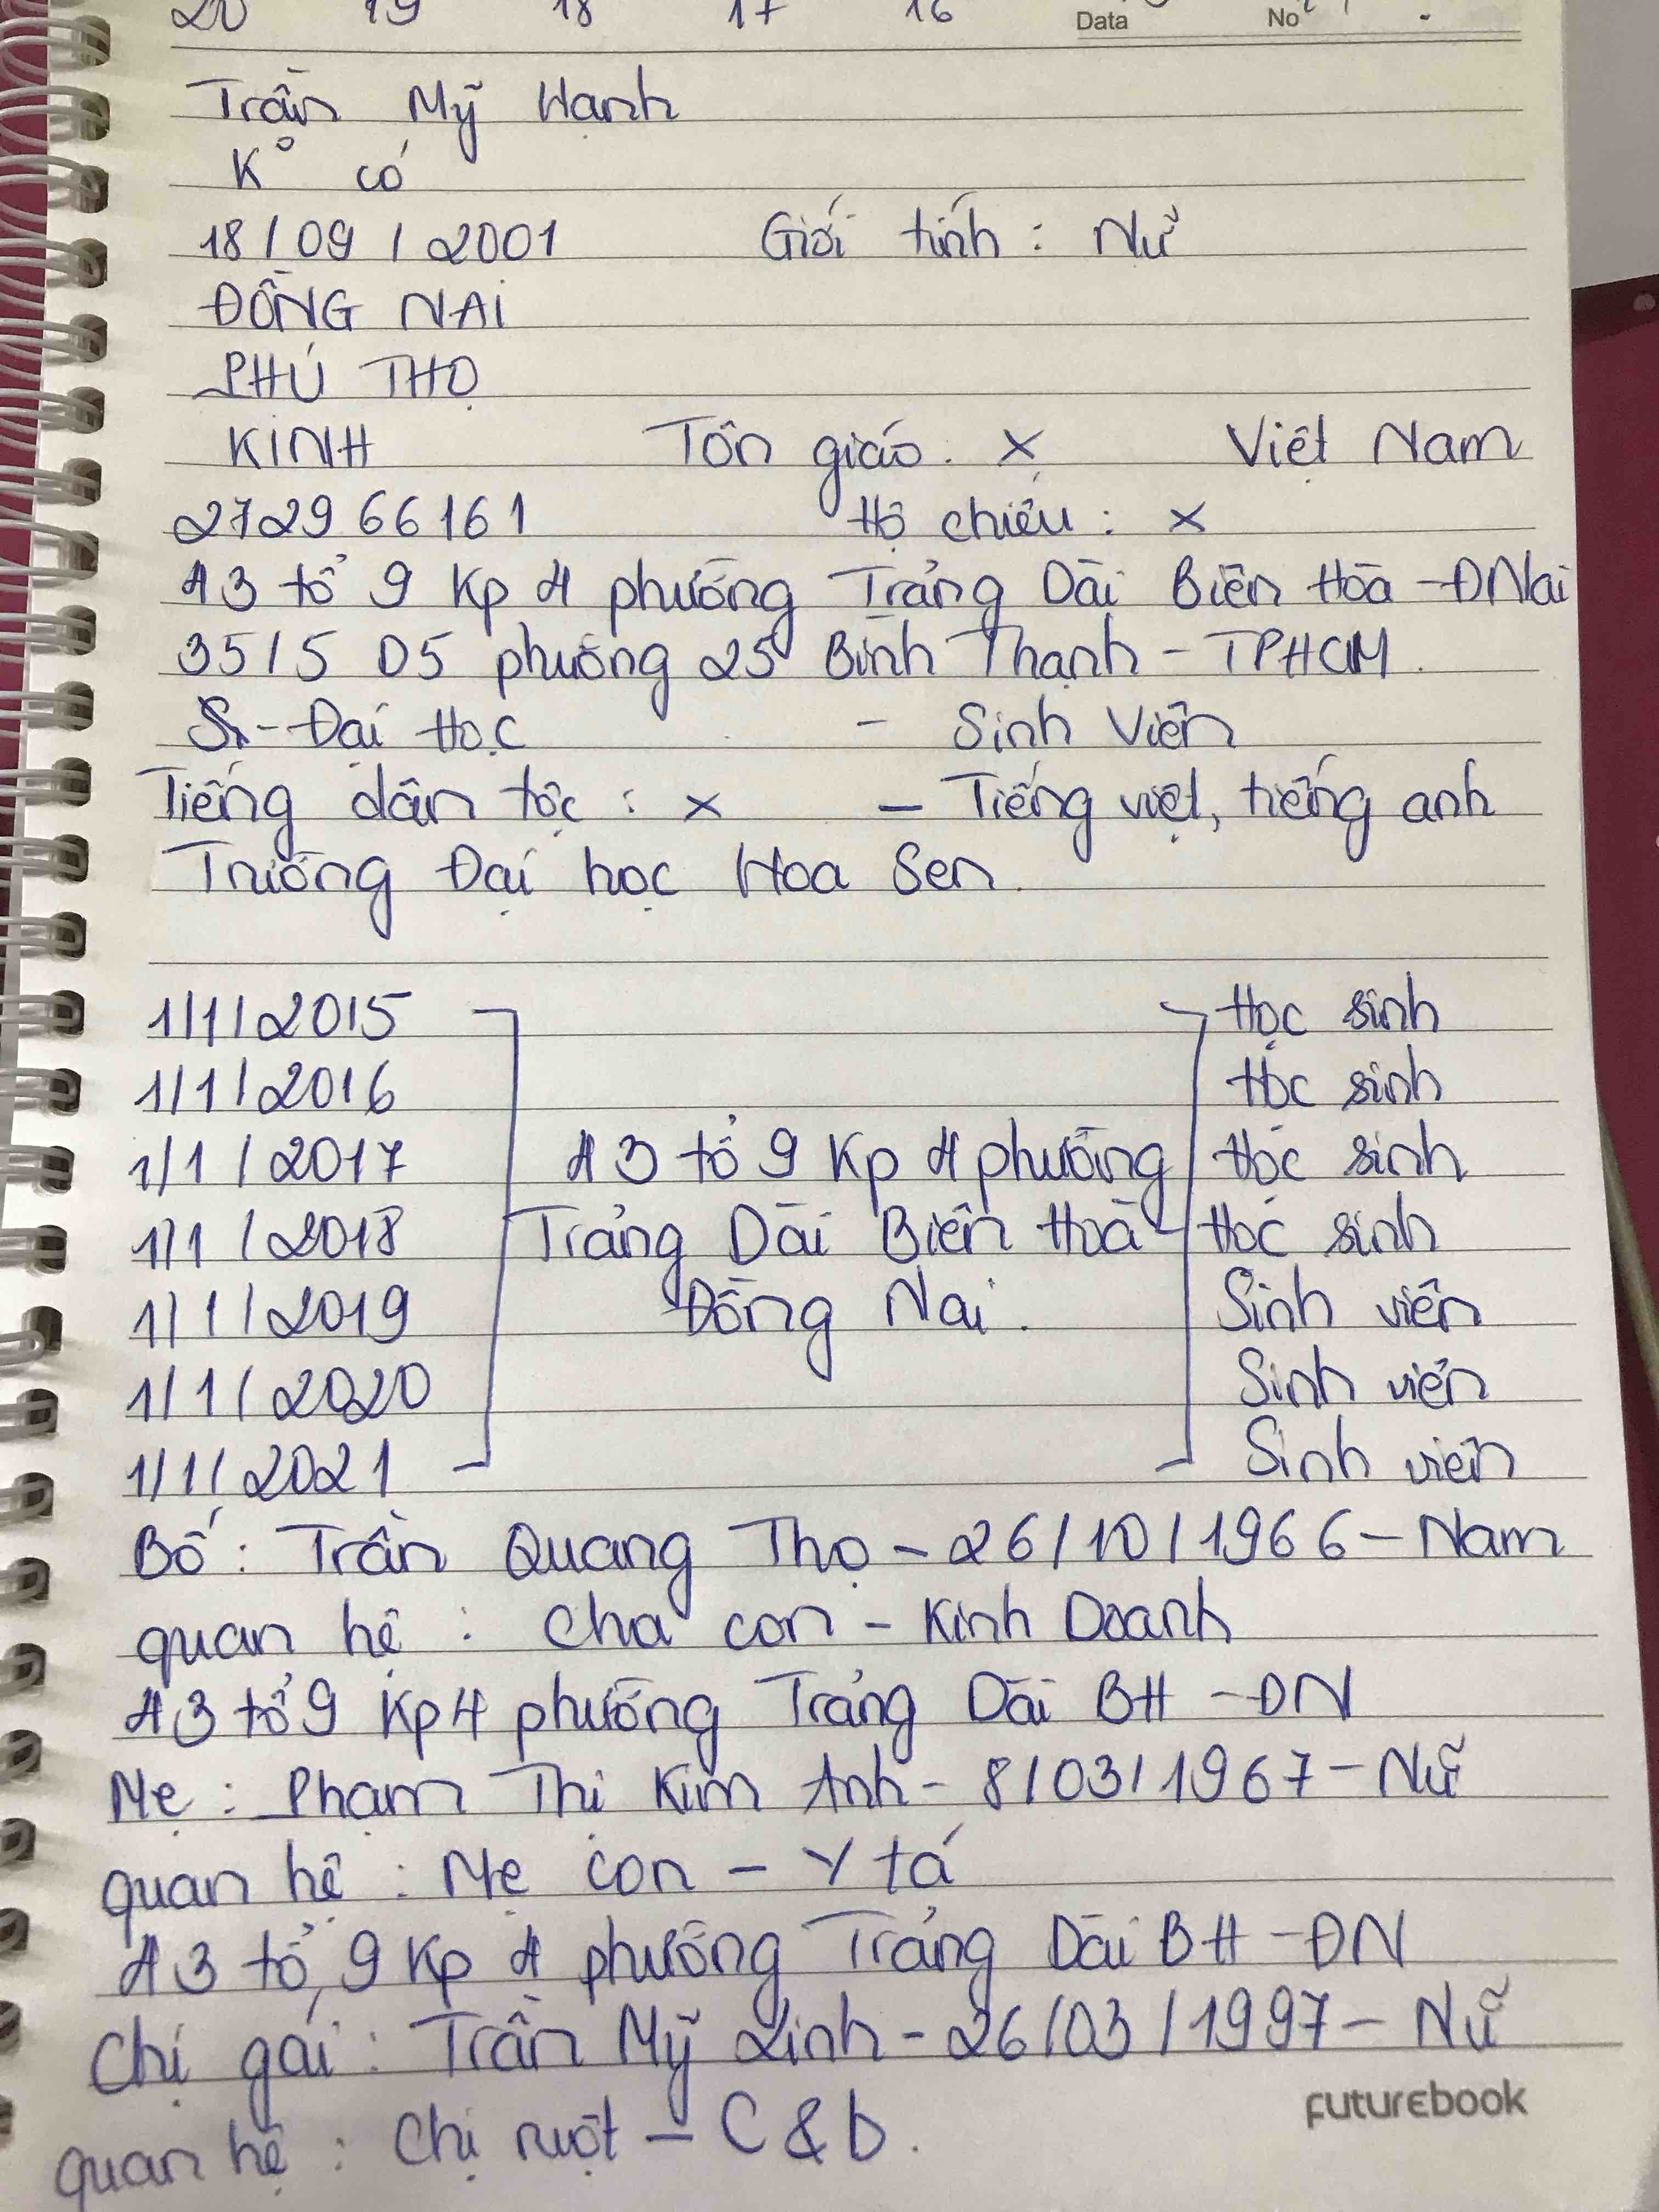 20 19 18 17 16 Data No
Trần Mỹ Hạnh
K° có
18/09/2001 Giới tính: Nữ
ĐỒNG NAi
PHÚ THỌ
KiNH Tôn giáo: X Việt Nam
272966161 Hộ chiếu: X
A3 tổ 9 Kp 4 phường Trảng Dài Biên Hòa - ĐNai
35/5 D5 phường 25 Bình Thạnh - TPHCM.
- Đại Học - Sinh Viên
Tiếng dân tộc: x - Tiếng việt, tiếng anh
Trường Đại học Hoa Sen.
1/1/2015 Học sinh
1/1/2016 Học sinh
1/1/2017 A3 tổ 9 Kp 4 phường Học sinh
1/1/2018 Trảng Dài Biên Hoà Học sinh
1/1/2019 Đồng Nai. Sinh viên
1/1/2020 Sinh viên
1/1/2021 Sinh viên
Bố: Trần Quang Thọ - 26/10/1966 - Nam
quan hệ: Cha con - Kinh Doanh
A3 tổ 9 Kp4 phường Trảng Dài BH - ĐN
Mẹ: Phạm Thị Kim Anh - 8/03/1967 - Nữ
quan hệ: Mẹ con - Y tá
A3 tổ 9 Kp 4 phường Trảng Dài BH - ĐN
Chị gái: Trần Mỹ Linh - 26/03/1997 - Nữ
quan hệ: Chị ruột - C&b.
futurebook